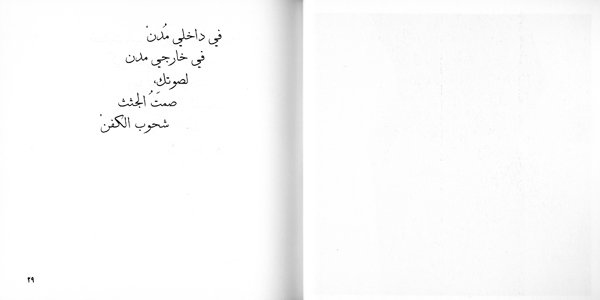 في داخلي مُدنْ
في خارجي مدن
لصوتكِ،
صمتُ الجثث
شحوب الكفنْ
٢٩